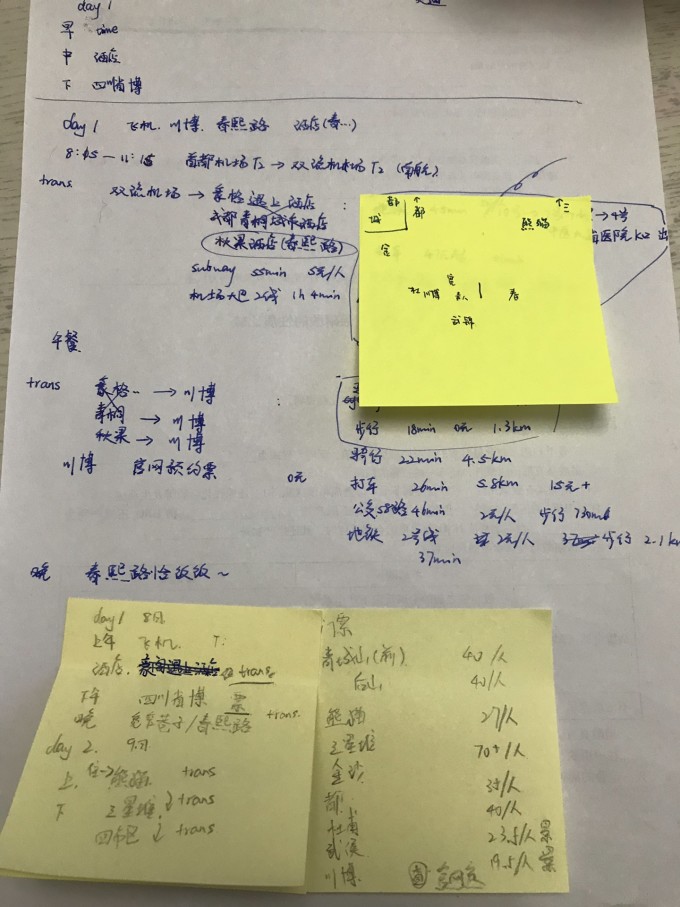 day 1
早 time
中 酒店
下 四川省博
day 1 飞机. 川博. 春熙路 酒店(春...)
8:45 — 11:15 首都机场T2 → 双流机场T2 (南航)
trans 双流机场 → 豪格遇上酒店 :
成都青桐城市酒店
秋果酒店(春熙路)
subway 55min 5元/人
机场大巴2线 1h 4min
都 ↑ ↑三
城 都 熊猫
金
宽
杜 川博 人 春
武锦
→4号
医院 K2 出
午餐
trans 豪格.. → 川博 :
青桐 → 川博
秋果 → 川博
步行 18min 0元 1.3km
川博 官网预约票 0元
骑行 22min 4.5km
打车 26min 5.8km 15元+
公交58路 46min 2元/人 步行730m
地铁 2号线 2元/人 步行 2.1k
37min
晚 春熙路恰饭饭~
day 1 8日
上午 飞机. T:
酒店. trans
下午 四川省博 票
晚 宽窄巷子/春熙路 trans.
day 2. 9日
上. 住→熊猫 trans
下 三星堆 ↓ trans
↓ trans
门票
青城山(前) 40/人
后山 40/人
熊猫 27/人
三星堆 70+/人
金沙 35/人
都. 40/人
杜甫 23.5/人
武侯 19.5/人
川博.